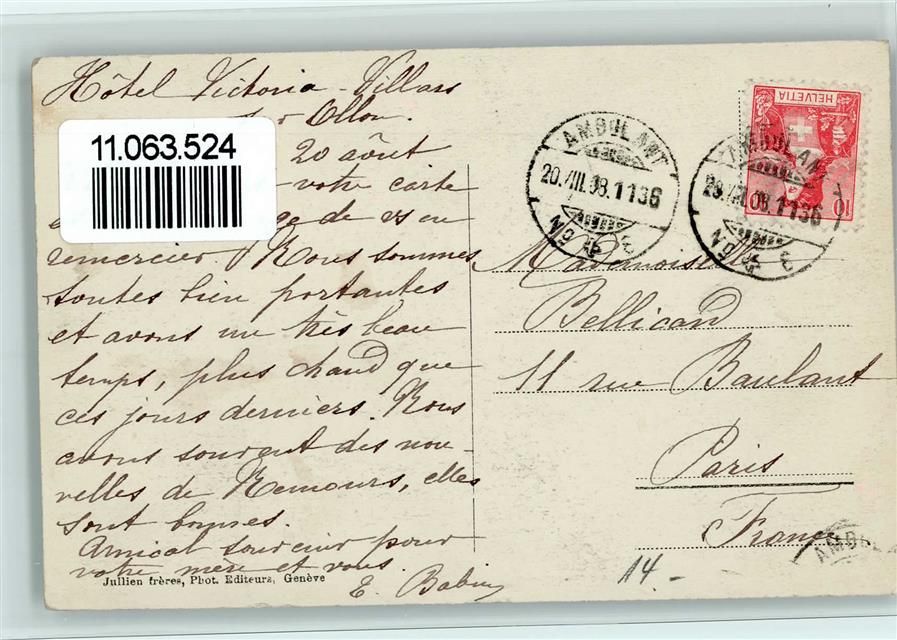 Hôtel Victoria - Villars
Ollon.
11.063.524
20 août
votre carte
de vs en
remercier. Nous sommes
toutes bien portantes
et avons un très beau
temps, plus chaud que
ces jours derniers. Nous
avons souvent des nou-
velles de Nemours, elles
sont bonnes.
Amical souvenir pour
votre mère et vous.
E. Babin
Jullien frères, Phot. Editeurs, Genève
AMBULANT
20.VIII.08.1136
HELVETIA
10
10
AMBULANT
20.VIII.08.1136
Mademoiselle
Bellicand
11 rue Baulant
Paris
France
14.-